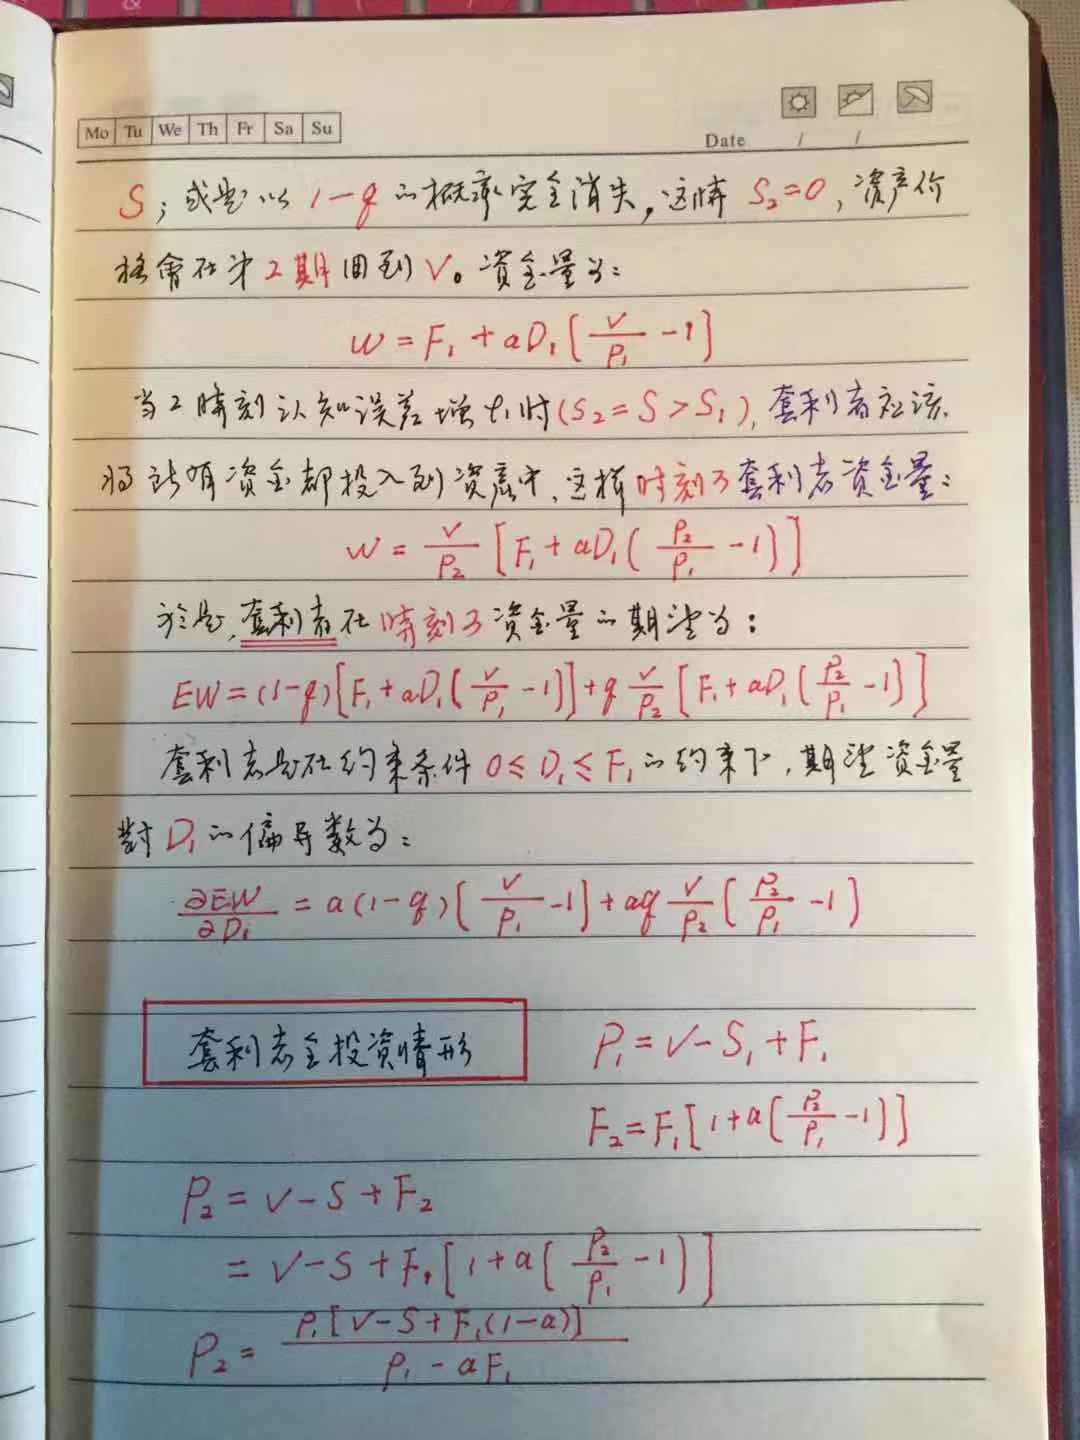 Mo Tu We Th Fr Sa Su
Date / /
S；或是以 1-q 的概率完全消失，这時 S₂=0，资产价
格會在第2期回到V。资金量为：
W = F₁ + aD₁[V/P₁ - 1]
当2時刻认知误差增大时(S₂=S>S₁)，套利者应该
将所有资金都投入到资产中，这样時刻3套利者资金量：
W = V/P₂ [F₁ + aD₁(P₂/P₁ - 1)]
於是，套利者在時刻3资金量的期望为：
EW = (1-q)[F₁ + aD₁(V/P₁ - 1)] + q V/P₂ [F₁ + aD₁(P₂/P₁ - 1)]
套利者是在约束条件 0 ≤ D₁ ≤ F₁ 的约束下，期望资金量
對D₁的偏导数为：
∂EW/∂D₁ = a(1-q)[V/P₁ - 1] + aq V/P₂ [P₂/P₁ - 1]
套利者全投资情形
P₁ = V - S₁ + F₁
F₂ = F₁[1 + a(P₂/P₁ - 1)]
P₂ = V - S + F₂
= V - S + F₁[1 + a(P₂/P₁ - 1)]
P₂ = P₁[V - S + F₁(1-a)] / P₁ - aF₁